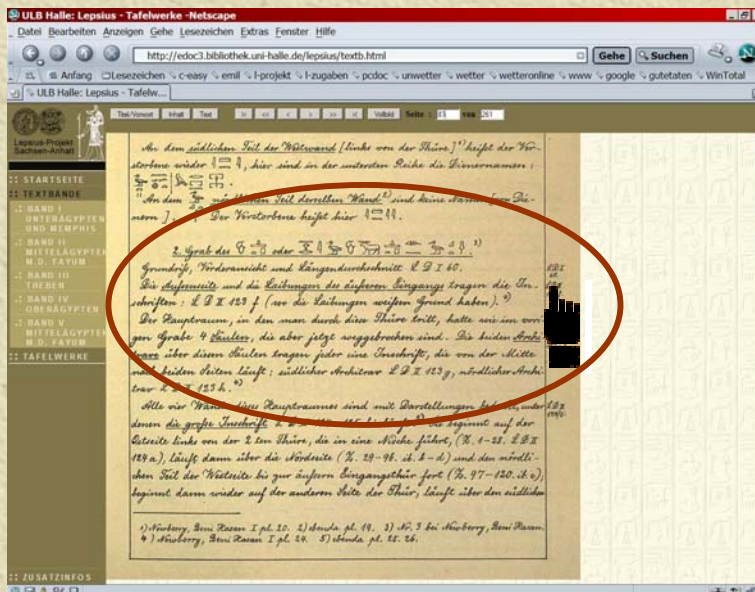 ULB Halle: Lepsius - Tafelwerke -Netscape
Datei Bearbeiten Anzeigen Gehe Lesezeichen Extras Fenster Hilfe
http://edoc3.bibliothek.uni-halle.de/lepsius/textb.html Gehe Suchen
Anfang Lesezeichen c-easy emil l-projekt l-zugaben pcdoc unwetter wetter wetteronline www google gutetaten WinTotal
ULB Halle: Lepsius - Tafelw...
Titel/Vorwort Inhalt Text Vollbild Seite : 83 von 261
Lepsius-Projekt
Sachsen-Anhalt
:: STARTSEITE
:: TEXTBÄNDE
.: BAND I
UNTERÄGYPTEN
UND MEMPHIS
.: BAND II
MITTELÄGYPTEN
M.D. FAYUM
.: BAND III
THEBEN
.: BAND IV
OBERÄGYPTEN
.: BAND V
MITTELÄGYPTEN
M.D. FAYUM
:: TAFELWERKE
:: ZUSATZINFOS
An dem südlichen Teil der Westwand [links von der Thüre]¹) heißt der Ver-
storbene wieder, hier sind in der untersten Reihe die Dienernamen:
An dem nördlichen Teil derselben Wand²) sind keine Namen [von Die-
nern]. Der Verstorbene heißt hier
2. Grab des oder . ³)
Grundriß, Vorderansicht und Längendurchschnitt L D I 60.
Die Außenseite und die Laibungen des äußeren Eingangs tragen die In-
schriften: L D II 123 f (wo die Laibungen weißen Grund haben). ⁴)
Der Hauptraum, in den man durch diese Thüre tritt, hatte wie im vori-
gen Grabe 4 Säulen, die aber jetzt weggebrochen sind. Die beiden Archi-
trave über diesen Säulen tragen jeder eine Inschrift, die von der Mitte
nach beiden Seiten läuft: südlicher Architrav L D II 123 g, nördlicher Archi-
trav L D II 123 h. ⁴)
Alle vier Wände dieses Hauptraumes sind mit Darstellungen bedeckt, unter
denen die große Inschrift beginnt auf der
Ostseite links von der 2ten Thüre, die in eine Nische führt, (Z. 1-28. L D II
124 a), läuft dann über die Nordseite (Z. 29-96. ib. b-d) und den nördli-
chen Teil der Westseite bis zur äußern Eingangsthür fort (Z. 97-120. ib. e),
beginnt dann wieder auf der anderen Seite der Thür, läuft über den südlichen
1) Newberry, Beni Hasan I pl. 20. 2) ebenda pl. 19. 3) Nr. 3 bei Newberry, Beni Hasan.
4) Newberry, Beni Hasan I pl. 24. 5) ebenda pl. 25. 26.